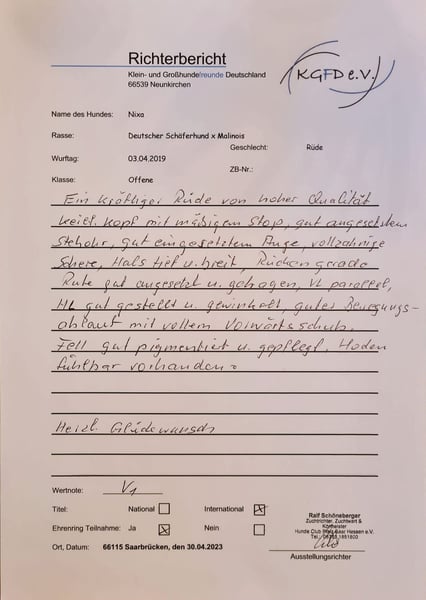 Richterbericht
Klein- und Großhundefreunde Deutschland
66539 Neunkirchen
KGFD e.V.
Name des Hundes: Nixa
Rasse: Deutscher Schäferhund x Malinois
Geschlecht: Rüde
Wurftag: 03.04.2019
ZB-Nr.:
Klasse: Offene
Ein kräftiger Rüde von hoher Qualität
keilf. Kopf mit mäßigem Stop, gut angesetztem
Stehohr, gut eingesetztem Auge, vollzahnige
Schere, Hals tief u. breit, Rücken gerade
Rute gut angesetzt u. getragen, VL parallel,
HL gut gestellt u. gewinkelt, gutes Bewegungs-
ablauf mit vollem Vorwärtsschub.
Fell gut pigmentiert u. gepflegt. Hoden
fühlbar vorhanden.
Herzl. Glückwunsch
Wertnote: V1
Titel: National International
Ehrenring Teilnahme: Ja Nein
Ort, Datum: 66115 Saarbrücken, den 30.04.2023
Ralf Schöneberger
Zuchtrichter, Zuchtwart &
Körmeister
Hunde Club Saar Hessen e.V.
Ausstellungsrichter